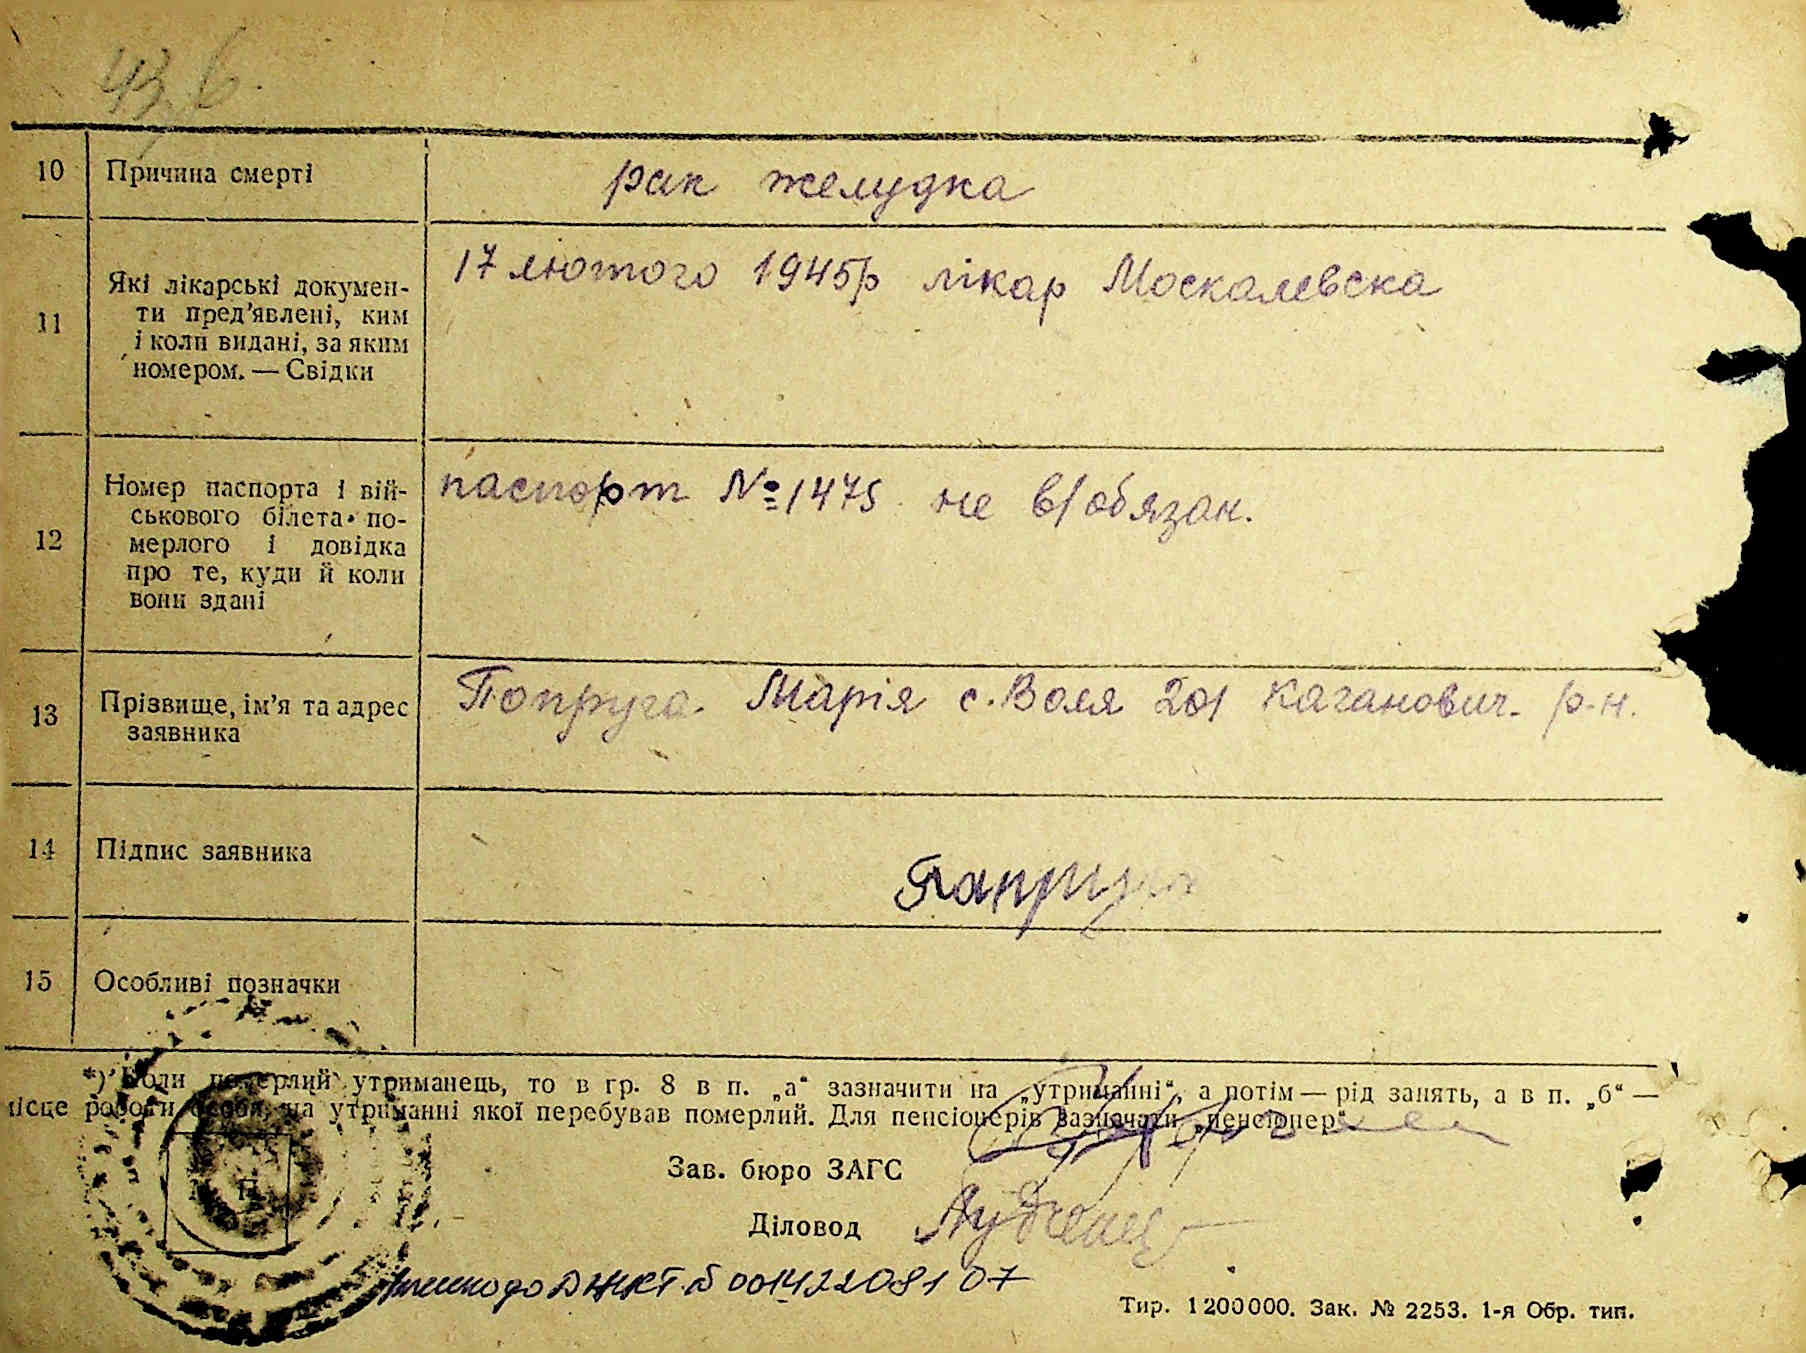 43,6
10 Причина смерті рак желудка
11 Які лікарські докумен-
ти пред'явлені, ким
і коли видані, за яким
номером. — Свідки
17 лютого 1945р лікар Москалевска
12 Номер паспорта і вій-
ськового білета по-
мерлого і довідка
про те, куди й коли
вони здані
паспорт №1475 не в/обязан.
13 Прізвище, ім'я та адрес
заявника
Попруга Марія с. Воля 201 Каганович. р-н.
14 Підпис заявника Папруга
15 Особливі позначки
*) Коли померлий утриманець, то в гр. 8 в п. „а“ зазначити на „утриманні“, а потім — рід занять, а в п. „б“ —
місце роботи особи, на утриманні якої перебував померлий. Для пенсіонерів зазначати „пенсіонер“
Зав. бюро ЗАГС
Діловод
до 00142208107
Тир. 1200000. Зак. № 2253. 1-я Обр. тип.